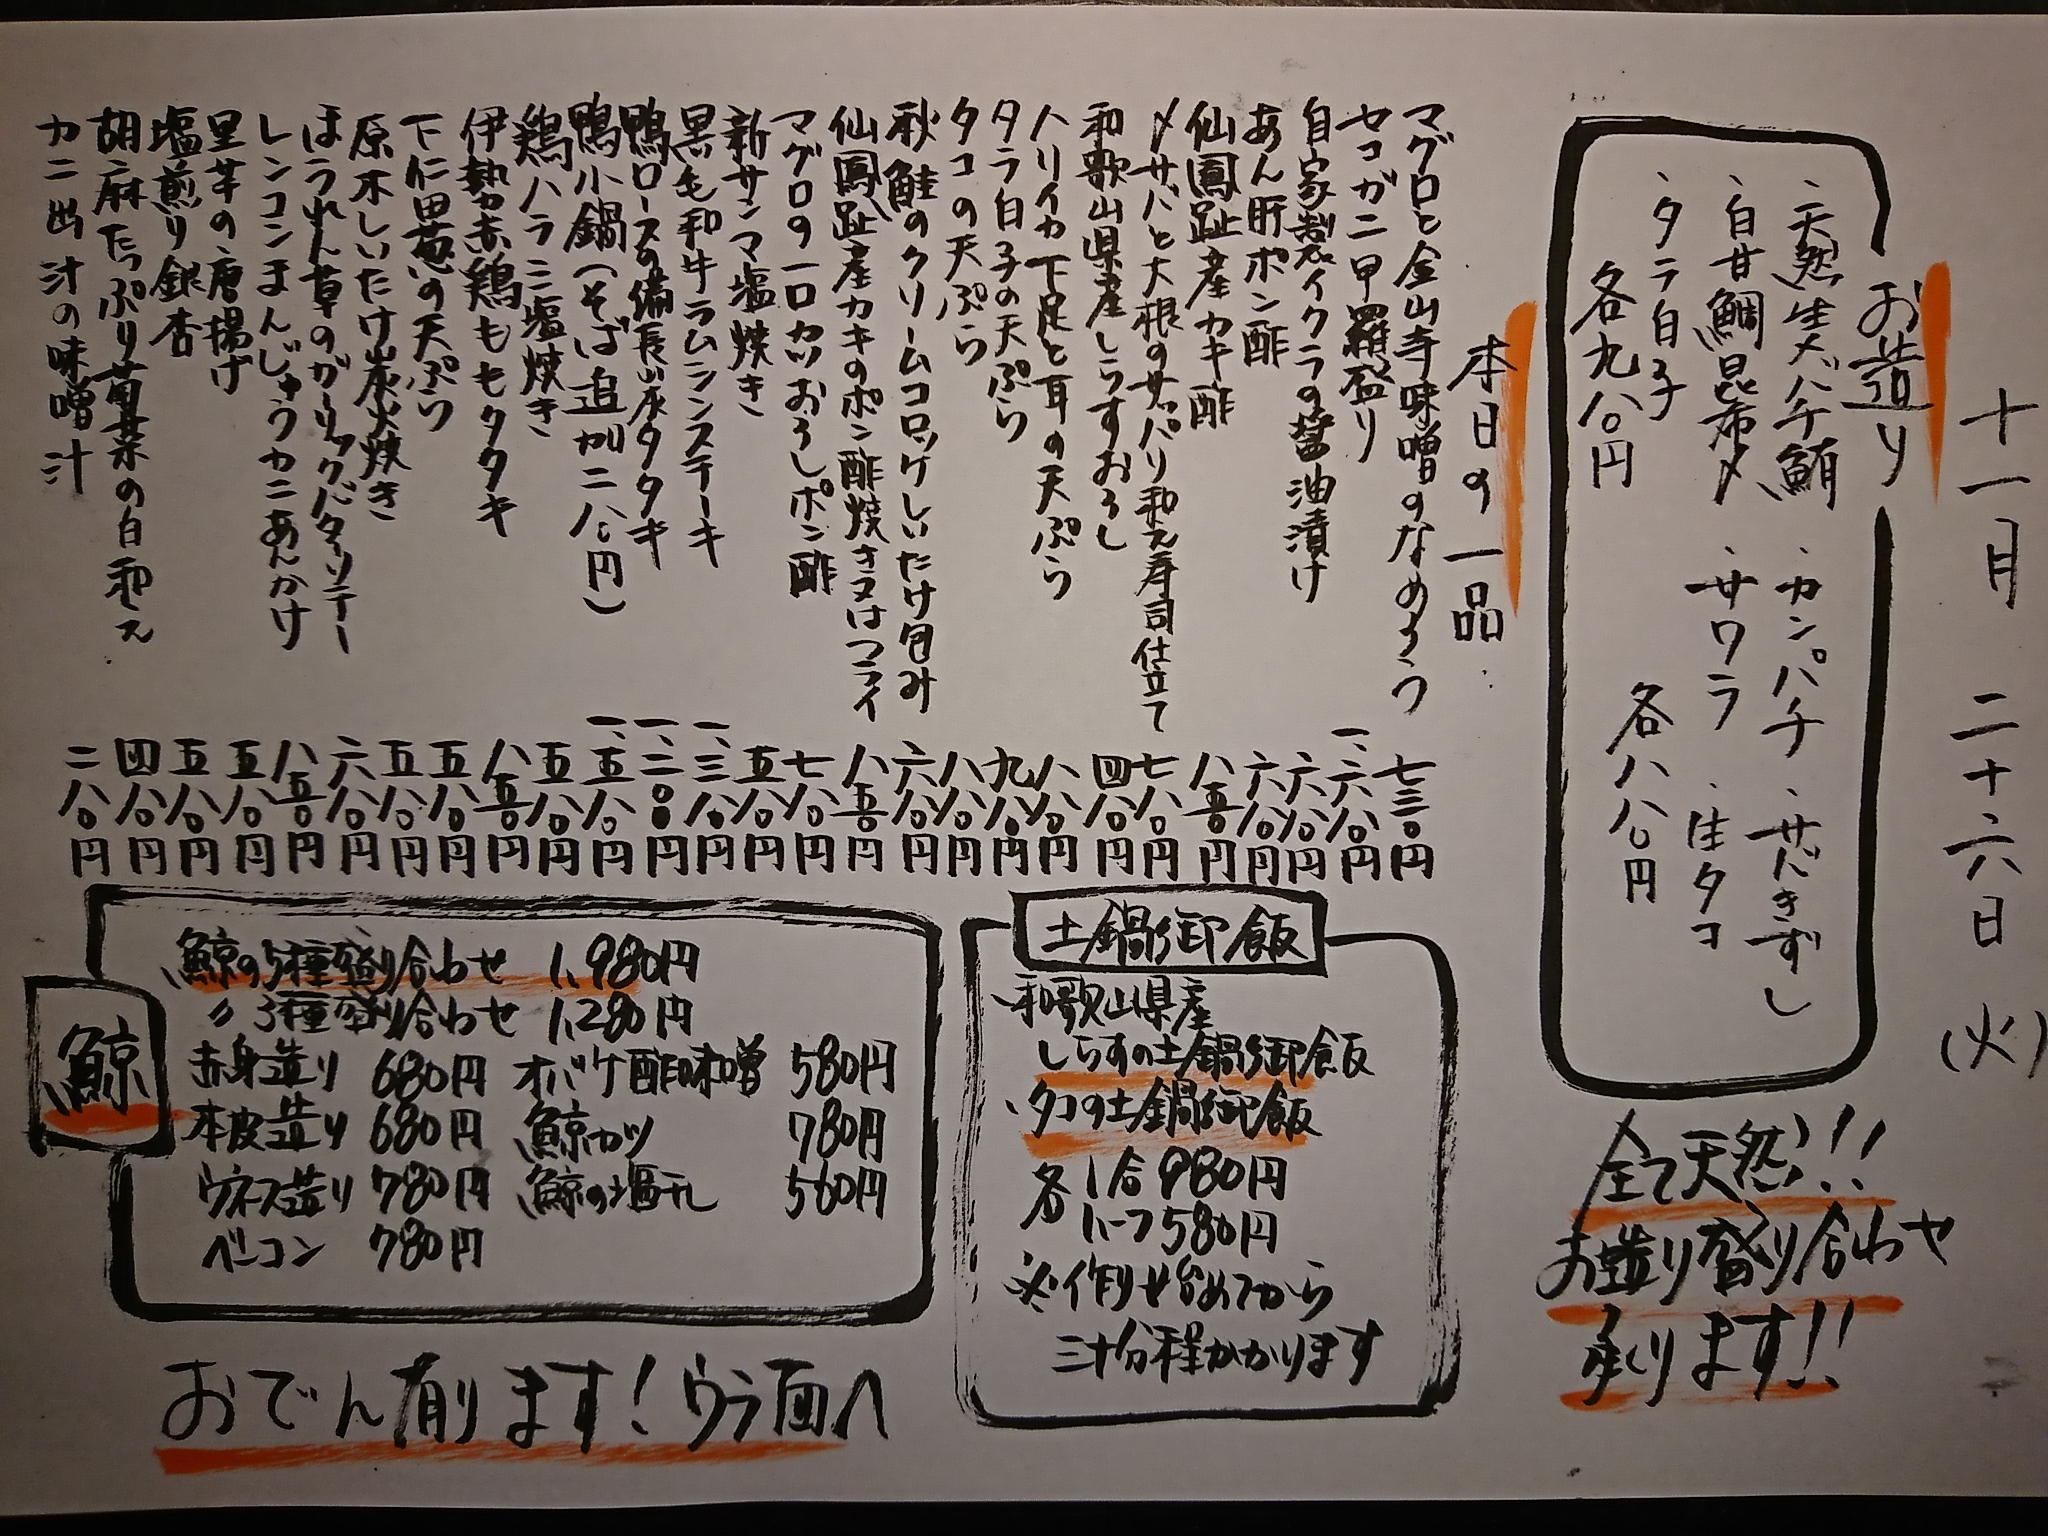 十一月 二十六日 (火)
お造り
・天然生メバチ鮪 ・カンパチ ・サバきずし
・白甘鯛昆布〆 ・サワラ ・生タコ
・タラ白子
各九八〇円 各八八〇円
全て天然!!
お造り盛り合わせ
承ります!!
本日の一品
マグロと金山寺味噌のなめろう 七三〇円
セコガニ甲羅盛り 一、六八〇円
自家製イクラの醤油漬け 六八〇円
あん肝ポン酢 六八〇円
仙鳳趾産カキ酢 八五〇円
〆サバと大根のサッパリ和え寿司仕立て 七八〇円
和歌山県産しらすおろし 四八〇円
ハリイカ下足と耳の天ぷら 八八〇円
タラ白子の天ぷら 九八〇円
タコの天ぷら 八八〇円
秋鮭のクリームコロッケしいたけ包み 六八〇円
仙鳳趾産カキのポン酢焼き又はフライ 八五〇円
マグロの一口カツおろしポン酢 七八〇円
新サンマ塩焼き 五八〇円
黒毛和牛ラムシンステーキ 一、三八〇円
鴨ロースの備長炭タタキ 一、二〇〇円
鴨小鍋(そば追加二八〇円) 一、五八〇円
鶏ハラミ塩焼き 五八〇円
伊勢赤鶏ももタタキ 八五〇円
下仁田葱の天ぷら 五八〇円
原木しいたけ炭火焼き 五八〇円
ほうれん草のガーリックバターソテー 六八〇円
レンコンまんじゅうカニあんかけ 八五〇円
里芋の唐揚げ 五八〇円
塩煎り銀杏 五八〇円
胡麻たっぷり菊菜の白和え 四八〇円
カニ出汁の味噌汁 二八〇円
土鍋御飯
・和歌山県産
しらすの土鍋御飯
・タコの土鍋御飯
各 1合980円
ハーフ580円
※作り始めてから
三十分程かかります
鯨
鯨の5種盛り合わせ 1,980円
〃3種盛り合わせ 1,280円
赤身造り 680円 オバケ酢味噌 580円
本皮造り 680円 鯨カツ 780円
ウネス造り 780円 鯨の塩干し 560円
ベーコン 780円
おでん有ります!ウラ面へ